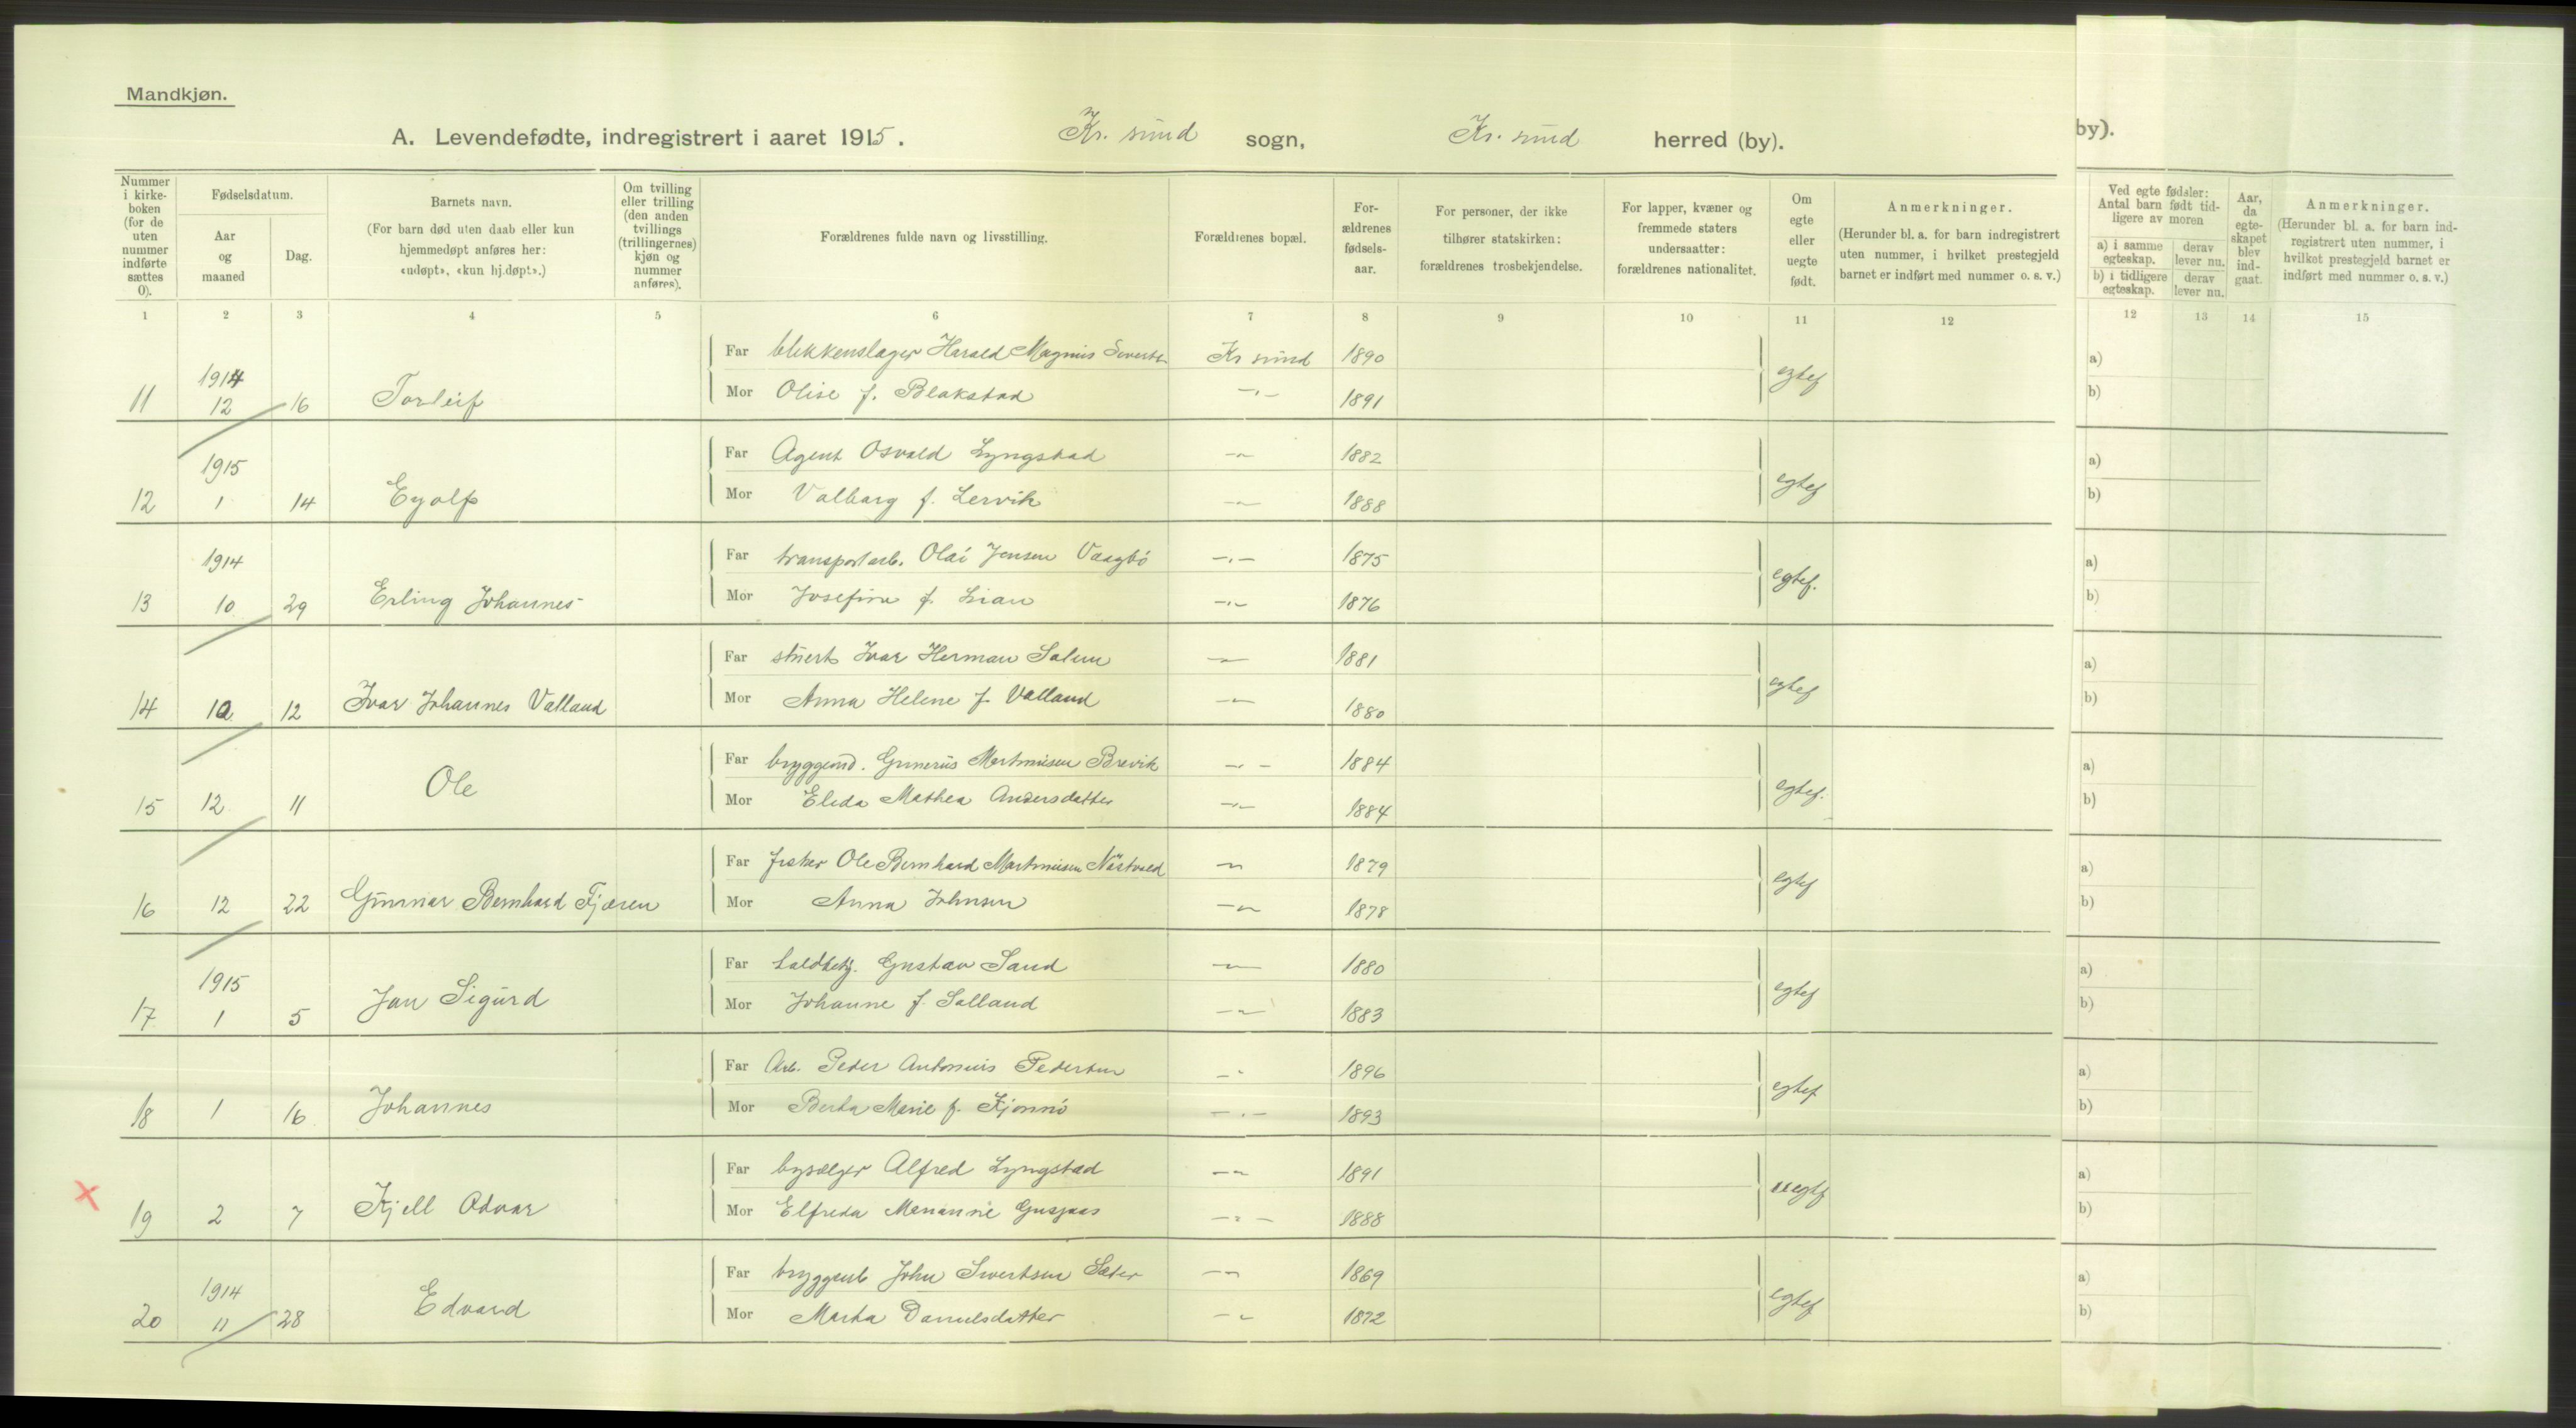 Mandkjøn.
A. Levendefødte, indregistrert i aaret 1915. Kr. sund sogn, Kr. sund herred (by).
by).
Nummer i kirkeboken (for de uten nummer indførte sættes 0).
Fødselsdatum.
Aar og maaned
Dag.
Barnets navn.
(For barn død uten daab eller kun hjemmedøpt anføres her: «udøpt», «kun hj.døpt».)
Om tvilling eller trilling (den anden tvillings (trillingernes) kjøn og nummer anføres).
Forældrenes fulde navn og livsstilling.
Forældrenes bopæl.
Forældrenes fødselsaar.
For personer, der ikke tilhører statskirken: forældrenes trosbekjendelse.
For lapper, kvæner og fremmede staters undersaatter: forældrenes nationalitet.
Om egte eller uegte født.
Anmerkninger.
(Herunder bl. a. for barn indregistrert uten nummer, i hvilket prestegjeld barnet er indført med nummer o. s. v.)
Ved egte fødsler: Antal barn født tidligere av moren
a) i samme egteskap.
derav lever nu.
b) i tidligere egteskap.
derav lever nu.
Aar, da egteskapet blev indgaat.
Anmerkninger.
(Herunder bl. a. for barn indregistrert uten nummer, i hvilket prestegjeld barnet er indført med nummer o. s. v.)
1 2 3 4 5 6 7 8 9 10 11 12 12 13 14 15
Far blikkenslager Harald Magnus Kr sund 1890 a)
11 1914 12 16 Torleif egtef
Mor Olise f. Blakstad -"- 1891 b)
Far Agent Osvald Lyngstad -"- 1882 a)
12 1915 1 14 Eyolf egtef
Mor Valborg f. Lervik -"- 1888 b)
Far transportarb. Olai Jensen Vaagbö -"- 1875 a)
13 1914 10 29 Erling Johannes egtef.
Mor Josefine f. Lian -"- 1876 b)
Far stuert Ivar Herman -"- 1881 a)
14 10 12 Ivar Johannes Valland egtef
Mor Anna Helene f. Valland -"- 1880 b)
Far Gunerius Martinusen Brevik -"- 1884 a)
15 12 11 Ole egtef.
Mor Elida Mathea Andersdatter -"- 1884 b)
Far fisker Ole Bernhard Martinusen -"- 1879 a)
16 12 22 Gunnar Bernhard Fjæren egtef
Mor Anna Johnsen -"- 1878 b)
Far Gustav Sand -"- 1880 a)
17 1915 1 5 Jan Sigurd egtef
Mor Johanne f. Salland -"- 1883 b)
Far Arb. Peder Antonius Pedersen -"- 1896 a)
18 1 16 Johannes egtef
Mor Berta Marie f. -"- 1893 b)
Far bysælger Alfred Lyngstad -"- 1891 a)
19 2 7 Kjell Odvar uegtf
Mor Elfreda -"- 1888 b)
Far bryggearb John Sivertsen Sæter -"- 1869 a)
20 1914 11 28 Edvard egtef
Mor Marta Danielsdatter -"- 1872 b)